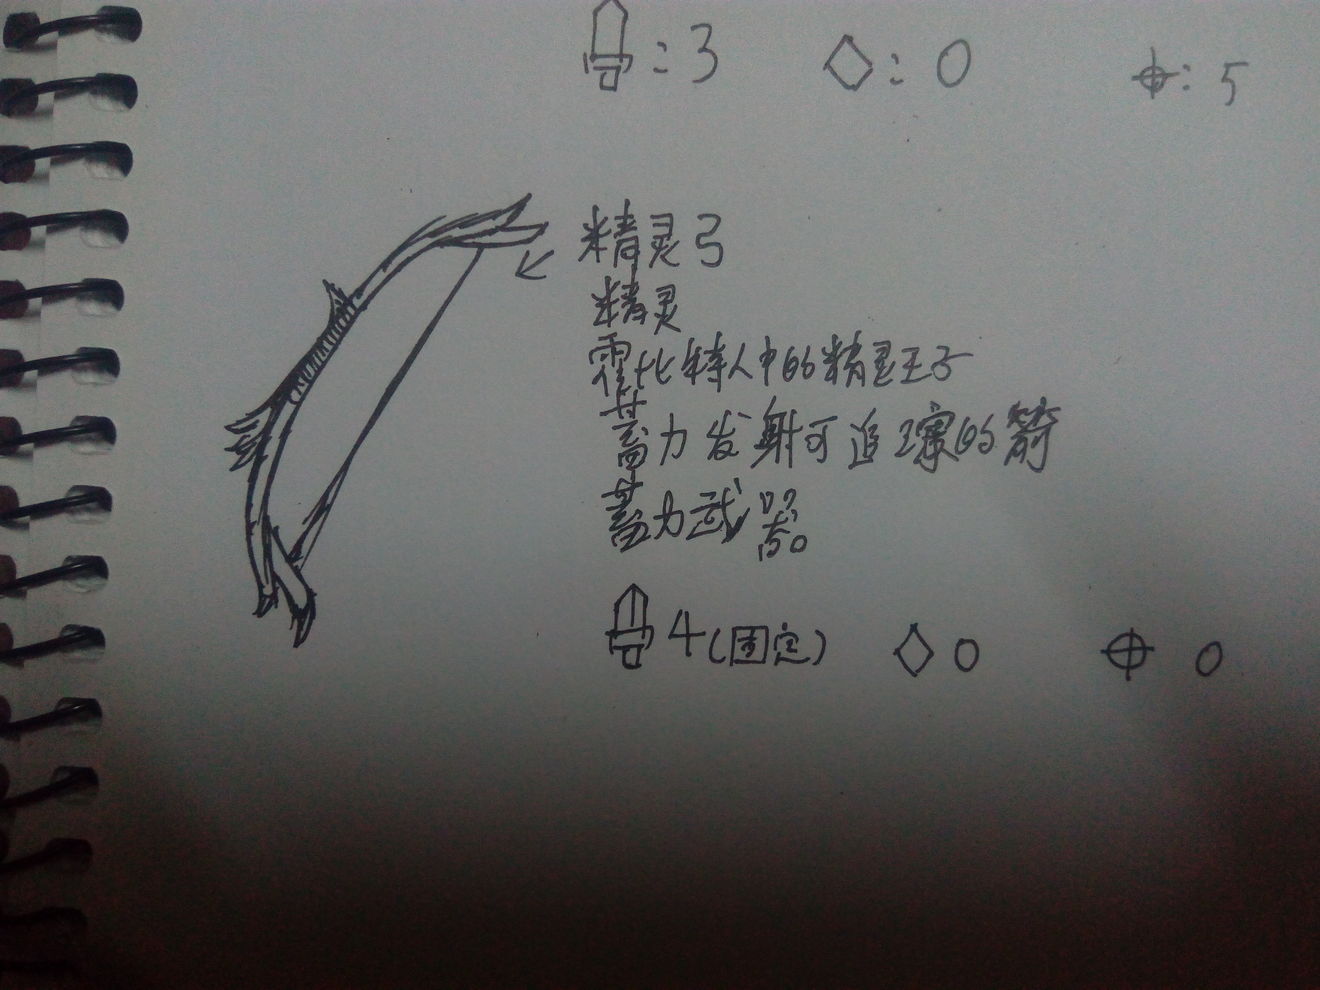 : 3 : 0 : 5
精灵弓
精灵
霍比特人中的精灵王子
蓄力发射可追踪的箭
蓄力武器。
4(固定) 0 0